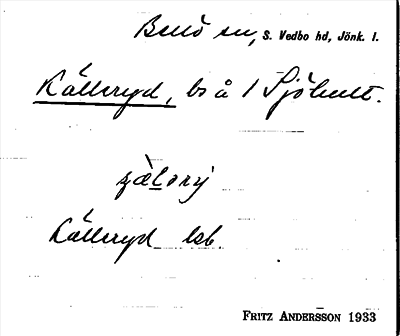 Bellö sn, S. Vedbo hd, Jönk. l.
Källeryd, bs å 1 Sjöhult.
Källeryd lsb.
FRITZ ANDERSSON 1933